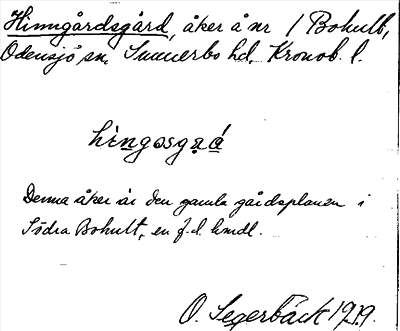 Hinngårdsgård, åker å nr 1 Bohult,
Odensjö sn, Sunnerbo hd, Kronob. l.
hìngəsgạá
Denna åker är den gamla gårdsplanen i
Södra Bohult, en f.d. hmdl.
O. Segerbäck 1929.